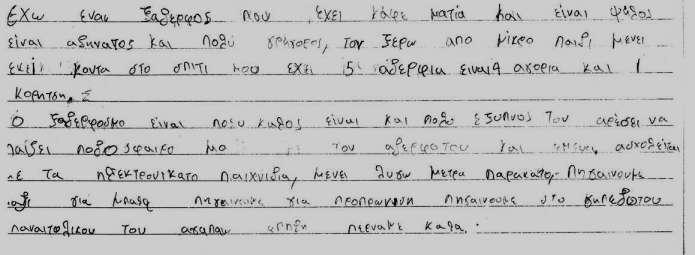 Εχω εναν ξαδερφος που έχει καφε ματια και είναι ψιλος
είναι αδηνατος και πολυ γρηγορος, τον ξερω απο μικρο παιδι μενει
εκει κοντα στο σπιτι μου εχει 5 αδερφια ειναι 4 αγορια και 1
κορητσι. Σ
Ο ξαδερφοσμο είναι πολυ καλος είναι και πολυ εξυπνος του αρέσει να
παίζει ποδοσφαιρο με τον αδερφοτου και εμενα, ασχολείται
με τα ηλεκτρονικαπο παιχνιδια, μενει λυγω μετρα παρακατο, πηγαινουμε
μαζι για μπαλα πηγαινουμε για προπονηση πηγαινουμε στο γηπεδωτου
παναιτολικου τον αγαπαω επηδη περναμε καλα.